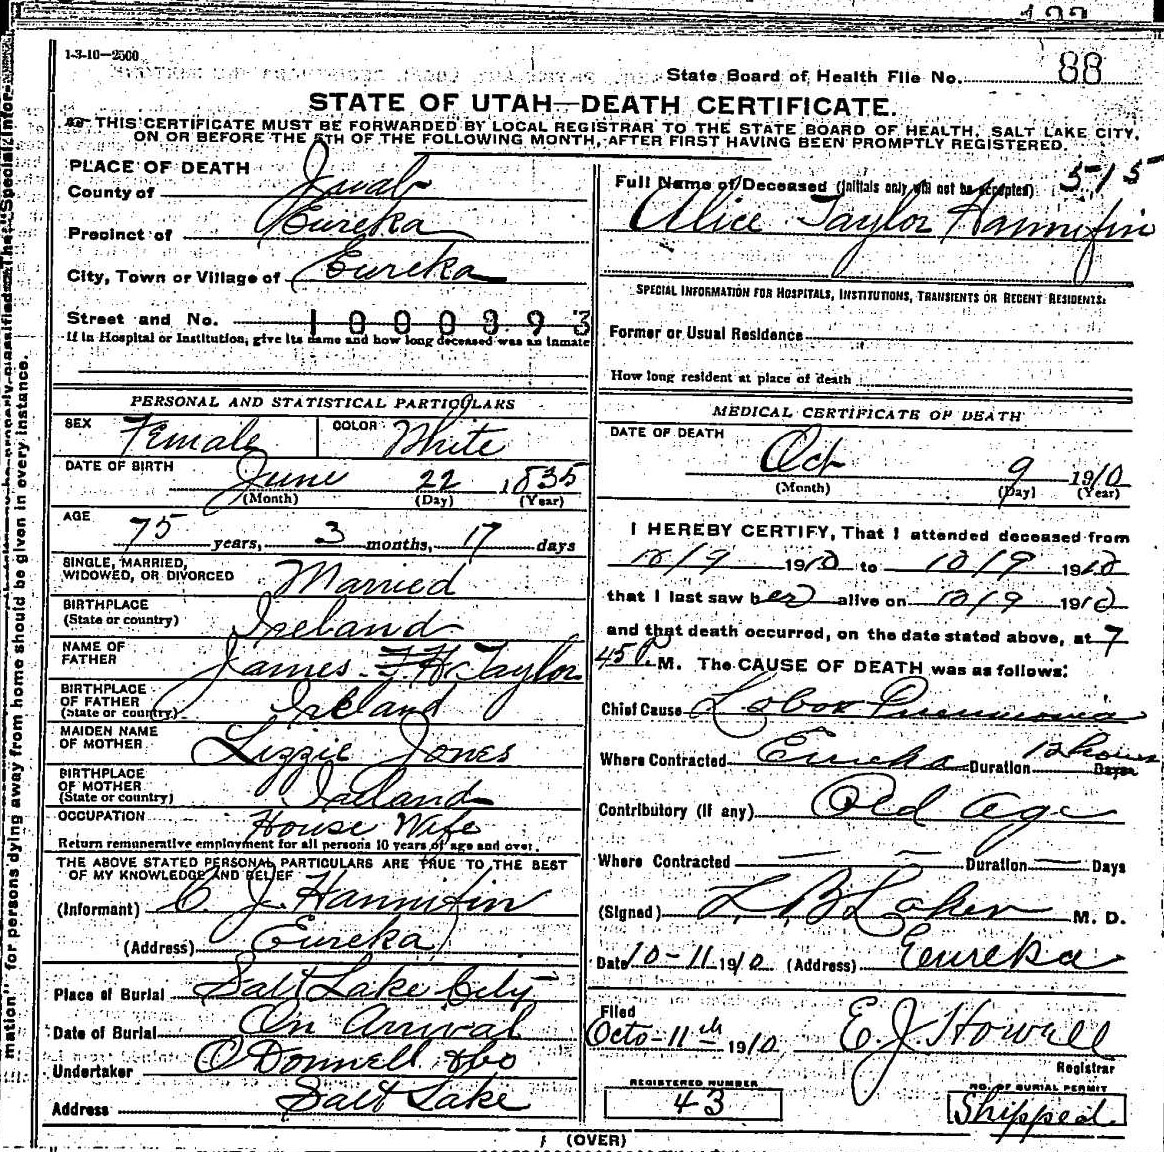 1-3-10—2500
State Board of Health File No. 88
STATE OF UTAH—DEATH CERTIFICATE.
THIS CERTIFICATE MUST BE FORWARDED BY LOCAL REGISTRAR TO THE STATE BOARD OF HEALTH, SALT LAKE CITY,
ON OR BEFORE THE 5TH OF THE FOLLOWING MONTH, AFTER FIRST HAVING BEEN PROMPTLY REGISTERED.
PLACE OF DEATH
County of Juab
Precinct of Eureka
City, Town or Village of Eureka
Street and No.
1000893
If in Hospital or Institution, give its name and how long deceased was an inmate
PERSONAL AND STATISTICAL PARTICULARS
SEX Female COLOR White
DATE OF BIRTH June 22 1835
(Month) (Day) (Year)
AGE
75 years, 3 months, 17 days
SINGLE, MARRIED,
WIDOWED, OR DIVORCED Married
BIRTHPLACE
(State or country) Ireland
NAME OF
FATHER James F. H. Taylor
BIRTHPLACE
OF FATHER
(State or country) Ireland
MAIDEN NAME
OF MOTHER Lizzie Jones
BIRTHPLACE
OF MOTHER
(State or country) Ireland
OCCUPATION House Wife
Return remunerative employment for all persons 10 years of age and over.
THE ABOVE STATED PERSONAL PARTICULARS ARE TRUE TO THE BEST
OF MY KNOWLEDGE AND BELIEF
(Informant) C. J. Hannifin
(Address) Eureka
Place of Burial Salt Lake City
Date of Burial On Arrival
Undertaker O'Donnell & Co
Address Salt Lake
Full Name of Deceased (Initials only will not be accepted) 515
Alice Taylor Hannifin
SPECIAL INFORMATION FOR HOSPITALS, INSTITUTIONS, TRANSIENTS OR RECENT RESIDENTS:
Former or Usual Residence
How long resident at place of death
MEDICAL CERTIFICATE OF DEATH
DATE OF DEATH
Oct 9 1910
(Month) (Day) (Year)
I HEREBY CERTIFY, That I attended deceased from
10/9 1910 to 10/9 1910
that I last saw her alive on 10/9 1910
and that death occurred, on the date stated above, at 7
45 P. M. The CAUSE OF DEATH was as follows:
Chief Cause Lobar Pneumonia
Where Contracted Eureka Duration 12 hours Days
Contributory (if any) Old age
Where Contracted Duration Days
(Signed) L. B. Laker M. D.
Date 10-11 1910 (Address) Eureka
Filed
Octo-11th 1910 E. J. Howell
Registrar
REGISTERED NUMBER
43
NO. OF BURIAL PERMIT
Shipped
(OVER)
mation" for persons dying away from home should be given in every instance.